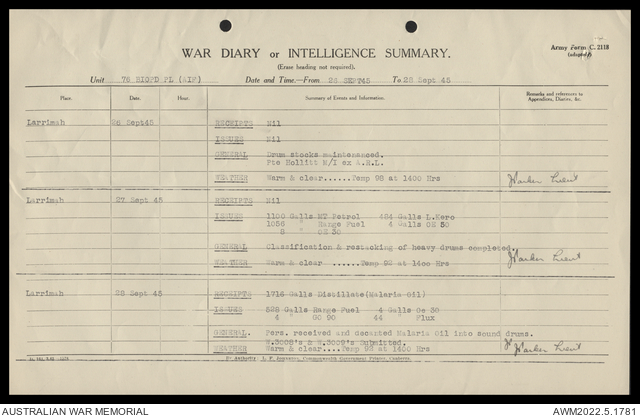 Army Form C. 2118
(adapted)
WAR DIARY or INTELLIGENCE SUMMARY.
(Erase heading not required).
Unit 76 BIOFD PL (AIF) Date and Time.—From 26 SEPT45 To 28 Sept 45
Place. Date. Hour. Summary of Events and Information. Remarks and references to Appendices, Diaries, &c.
Larrimah 26 Sept45 RECEIPTS Nil
ISSUES Nil
GENERAL Drum stocks maintenanced.
Pte Hollitt M/I ex A.R.L.
WEATHER Warm & clear......Temp 98 at 1400 Hrs Lieut
Larrimah 27 Sept 45 RECEIPTS Nil
ISSUES 1100 Galls MT Petrol 484 Galls L.Kero
1056 " Range Fuel 4 Galls OE 50
8 " OE 30
GENERAL Classification & restacking of heavy drums completed.
WEATHER Warm & clear .....Temp 92 at 1400 Hrs Lieut
Larrimah 28 Sept 45 RECEIPTS 1716 Galls Distillate(Malaria Oil)
ISSUES 528 Galls Range Fuel 4 Galls Oe 30
4 " GO 90 44 " Flux
GENERAL. Pers. received and decanted Malaria Oil into sound drums.
W.3008's & W.3009's Submitted.
WEATHER Warm & clear....Temp 92 at 1400 Hrs Lieut
By Authority: L. F. Johnston, Commonwealth Government Printer, Canberra.
AUSTRALIAN WAR MEMORIAL AWM2022.5.1781